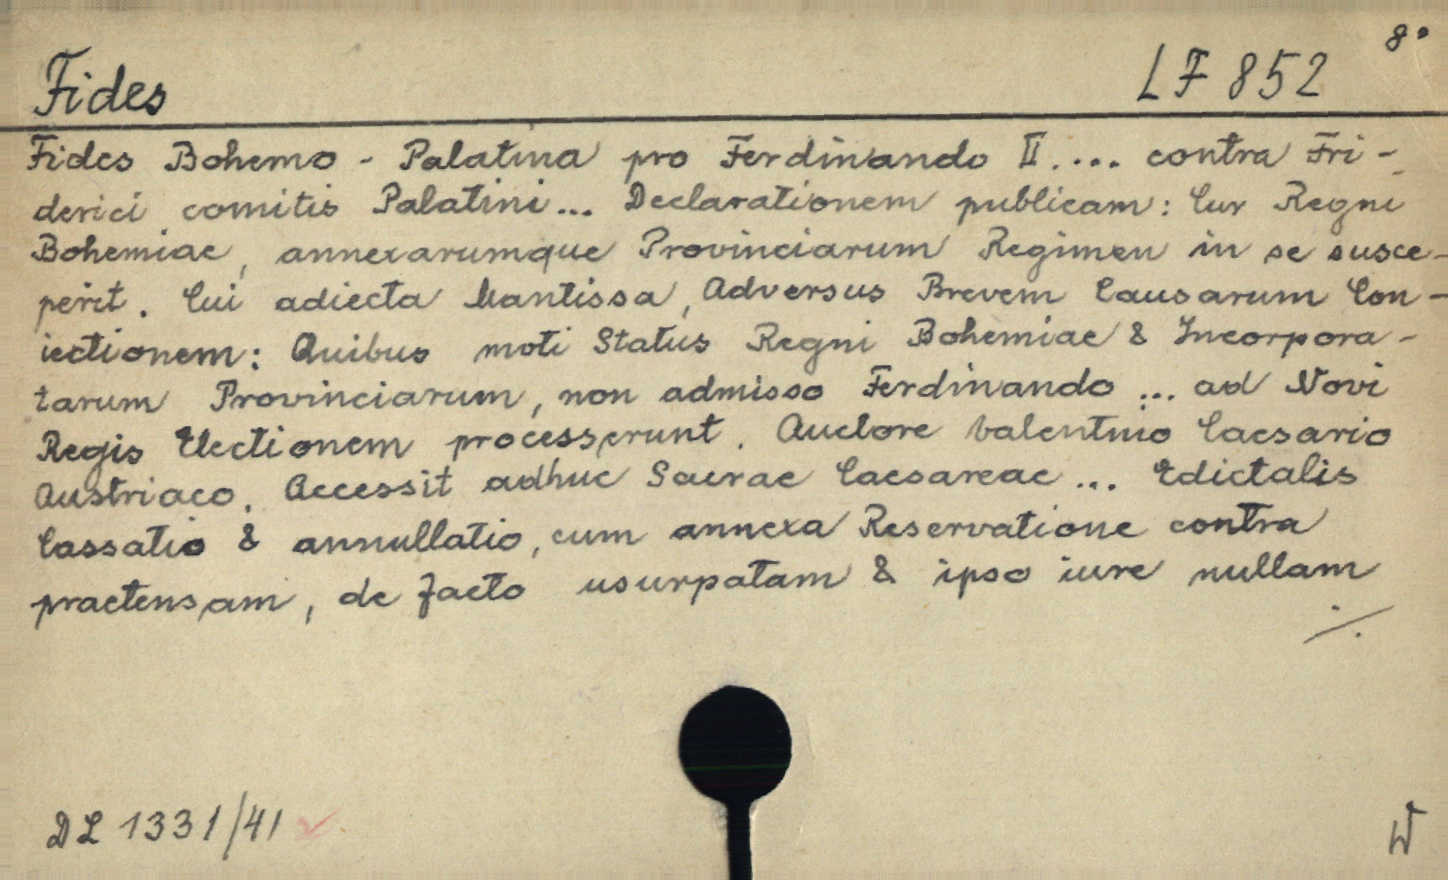 8°
Fides LF 852
Fides Bohemo - Palatina pro Ferdinando II. ... contra Fri-
derici comitis Palatini ... Declarationem publicam: Cur Regni
Bohemiae, annexarumque Provinciarum Regimen in se susce-
perit. Cui adiecta Mantissa, Adversus Brevem Causarum Con-
iectionem: Quibus moti Status Regni Bohemiae & Incorpora-
tarum Provinciarum, non admisso Ferdinando ... ad Novi
Regis Electionem processerunt. Auctore Valentino Caesario
Austriaco. Accessit adhuc Sacrae Caesareae ... Edictalis
Cassatio & annullatio, cum annexa Reservatione contra
praetensam, de facto usurpatam & ipso iure nullam
./.
DL 1331/41 ✓ W